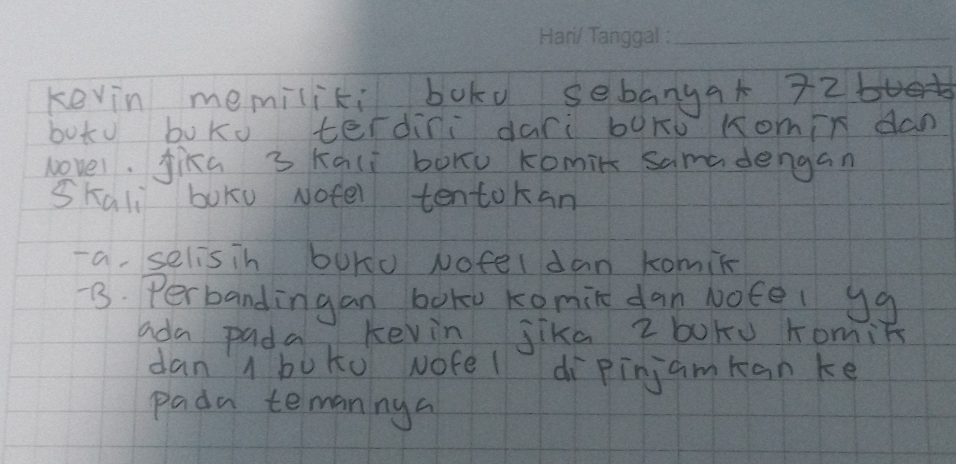 Hari/ Tanggal :
Kevin memiliki buku sebanyak 72 buah
buku buku terdiri dari buku komik dan
Novel. jika 3 kali buku komik sama dengan
5 kali buku Nofel tentukan
-a. selisih buku Nofel dan komik
-B. Perbandingan buku komik dan Nofel yg
ada pada kevin jika 2 buku komik
dan 1 buku Nofel di pinjamkan ke
pada temannya